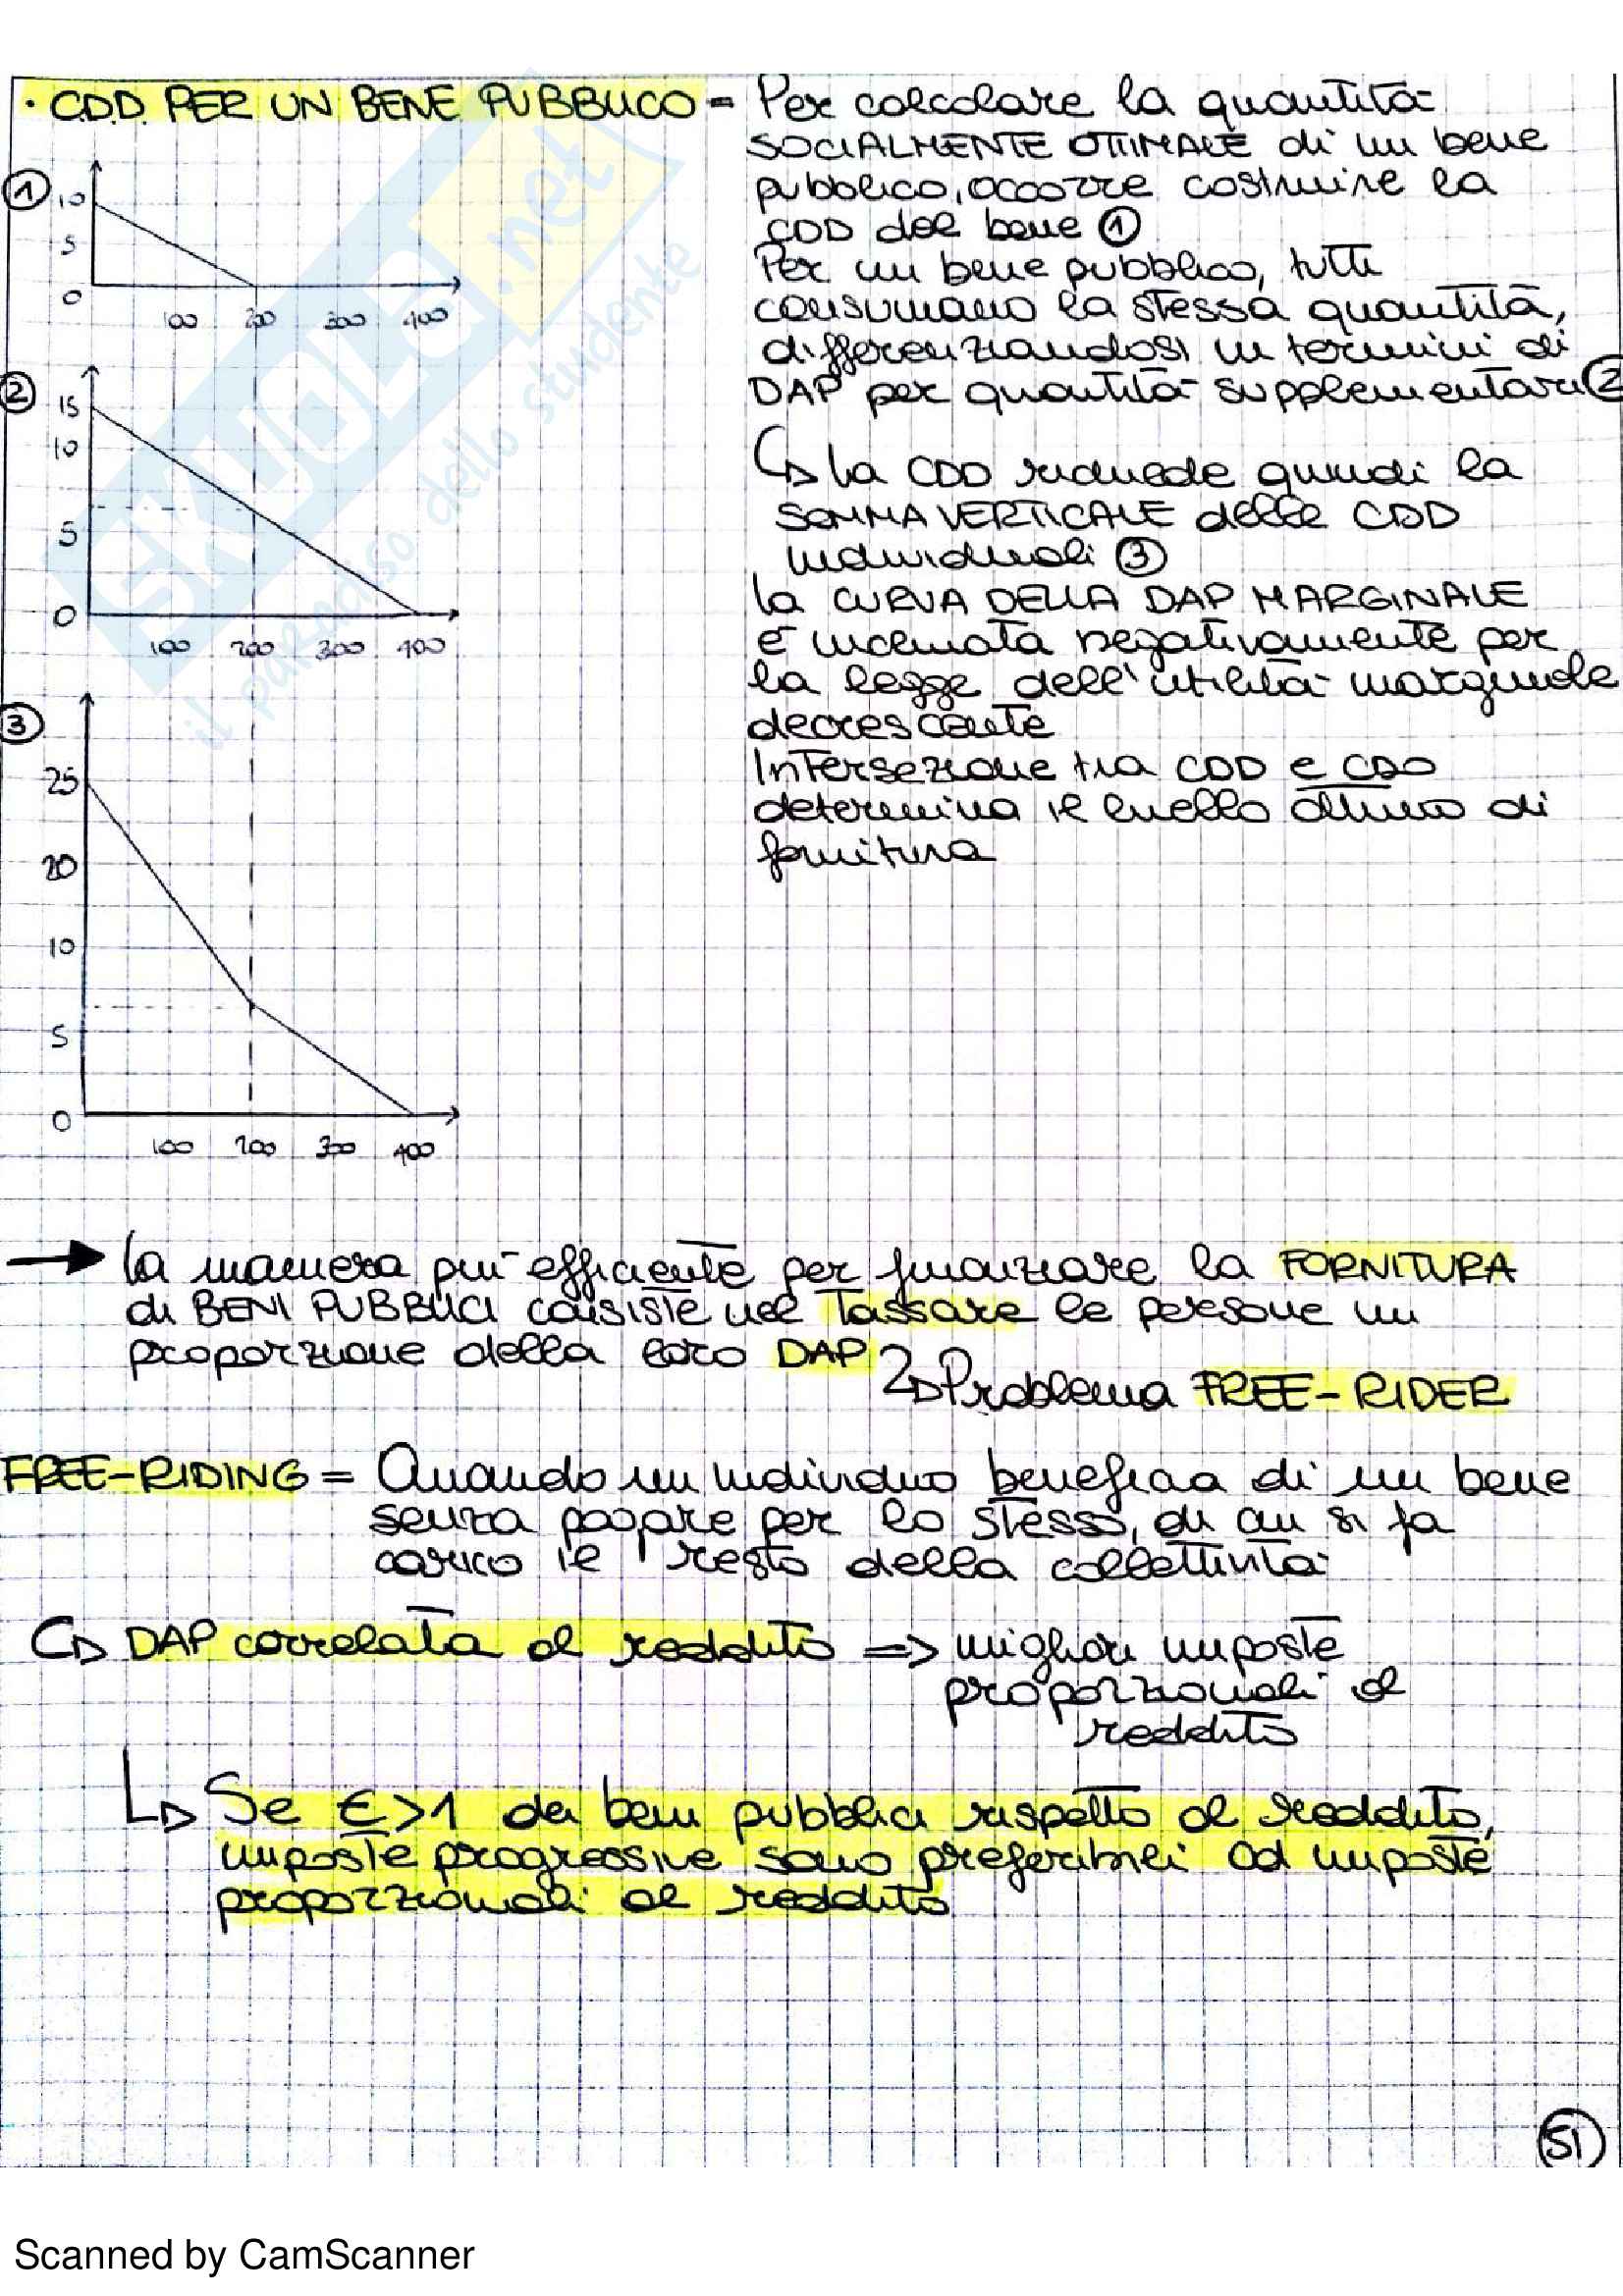 · C.D.D. PER UN BENE PUBBLICO = Per calcolare la quantità
SOCIALMENTE OTTIMALE di un bene
pubblico, occorre costruire la
CDD del bene ①
Per un bene pubblico, tutti
consumano la stessa quantità,
differenziandosi in termini di
DAP per quantità supplementari ②
↳ La CDD richiede quindi la
SOMMA VERTICALE delle CDD
individuali ③
La CURVA DELLA DAP MARGINALE
è inclinata negativamente per
la legge dell'utilità marginale
decrescente
Intersezione tra CDD e CDO
determina il livello ottimo di
fornitura
①
10
5
0
100 200 300 400
②
15
10
5
0
100 200 300 400
③
25
20
10
5
0
100 200 300 400
→ La maniera più efficiente per finanziare la FORNITURA
di BENI PUBBLICI consiste nel tassare le persone in
proporzione della loro DAP
↳ Problema FREE-RIDER
FREE-RIDING = Quando un individuo beneficia di un bene
senza pagare per lo stesso, di cui si fa
carico il resto della collettività
↳ DAP correlata al reddito => migliori imposte
proporzionali al
reddito
↳ Se ϵ>1 dei beni pubblici rispetto al reddito,
imposte progressive sono preferibili ad imposte
proporzionali al reddito
51
skuola.net
il paradiso dello studente
Scanned by CamScanner